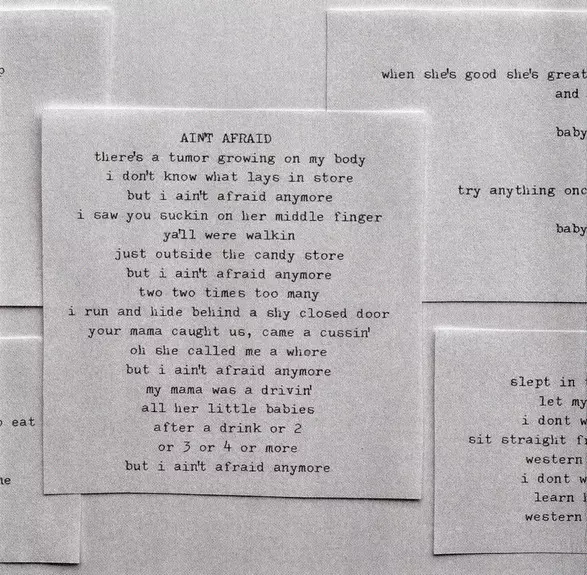 AIN'T AFRAID
there's a tumor growing on my body
i don't know what lays in store
but i ain't afraid anymore
i saw you suckin on her middle finger
ya'll were walkin
just outside the candy store
but i ain't afraid anymore
two two times too many
i run and hide behind a shy closed door
your mama caught us, came a cussin'
oh she called me a whore
but i ain't afraid anymore
my mama was a drivin'
all her little babies
after a drink or 2
or 3 or 4 or more
but i ain't afraid anymore
when she's good she's great
and
baby
try anything
baby
slept in
let my
i dont
sit straight
western
i dont
learn
western
eat